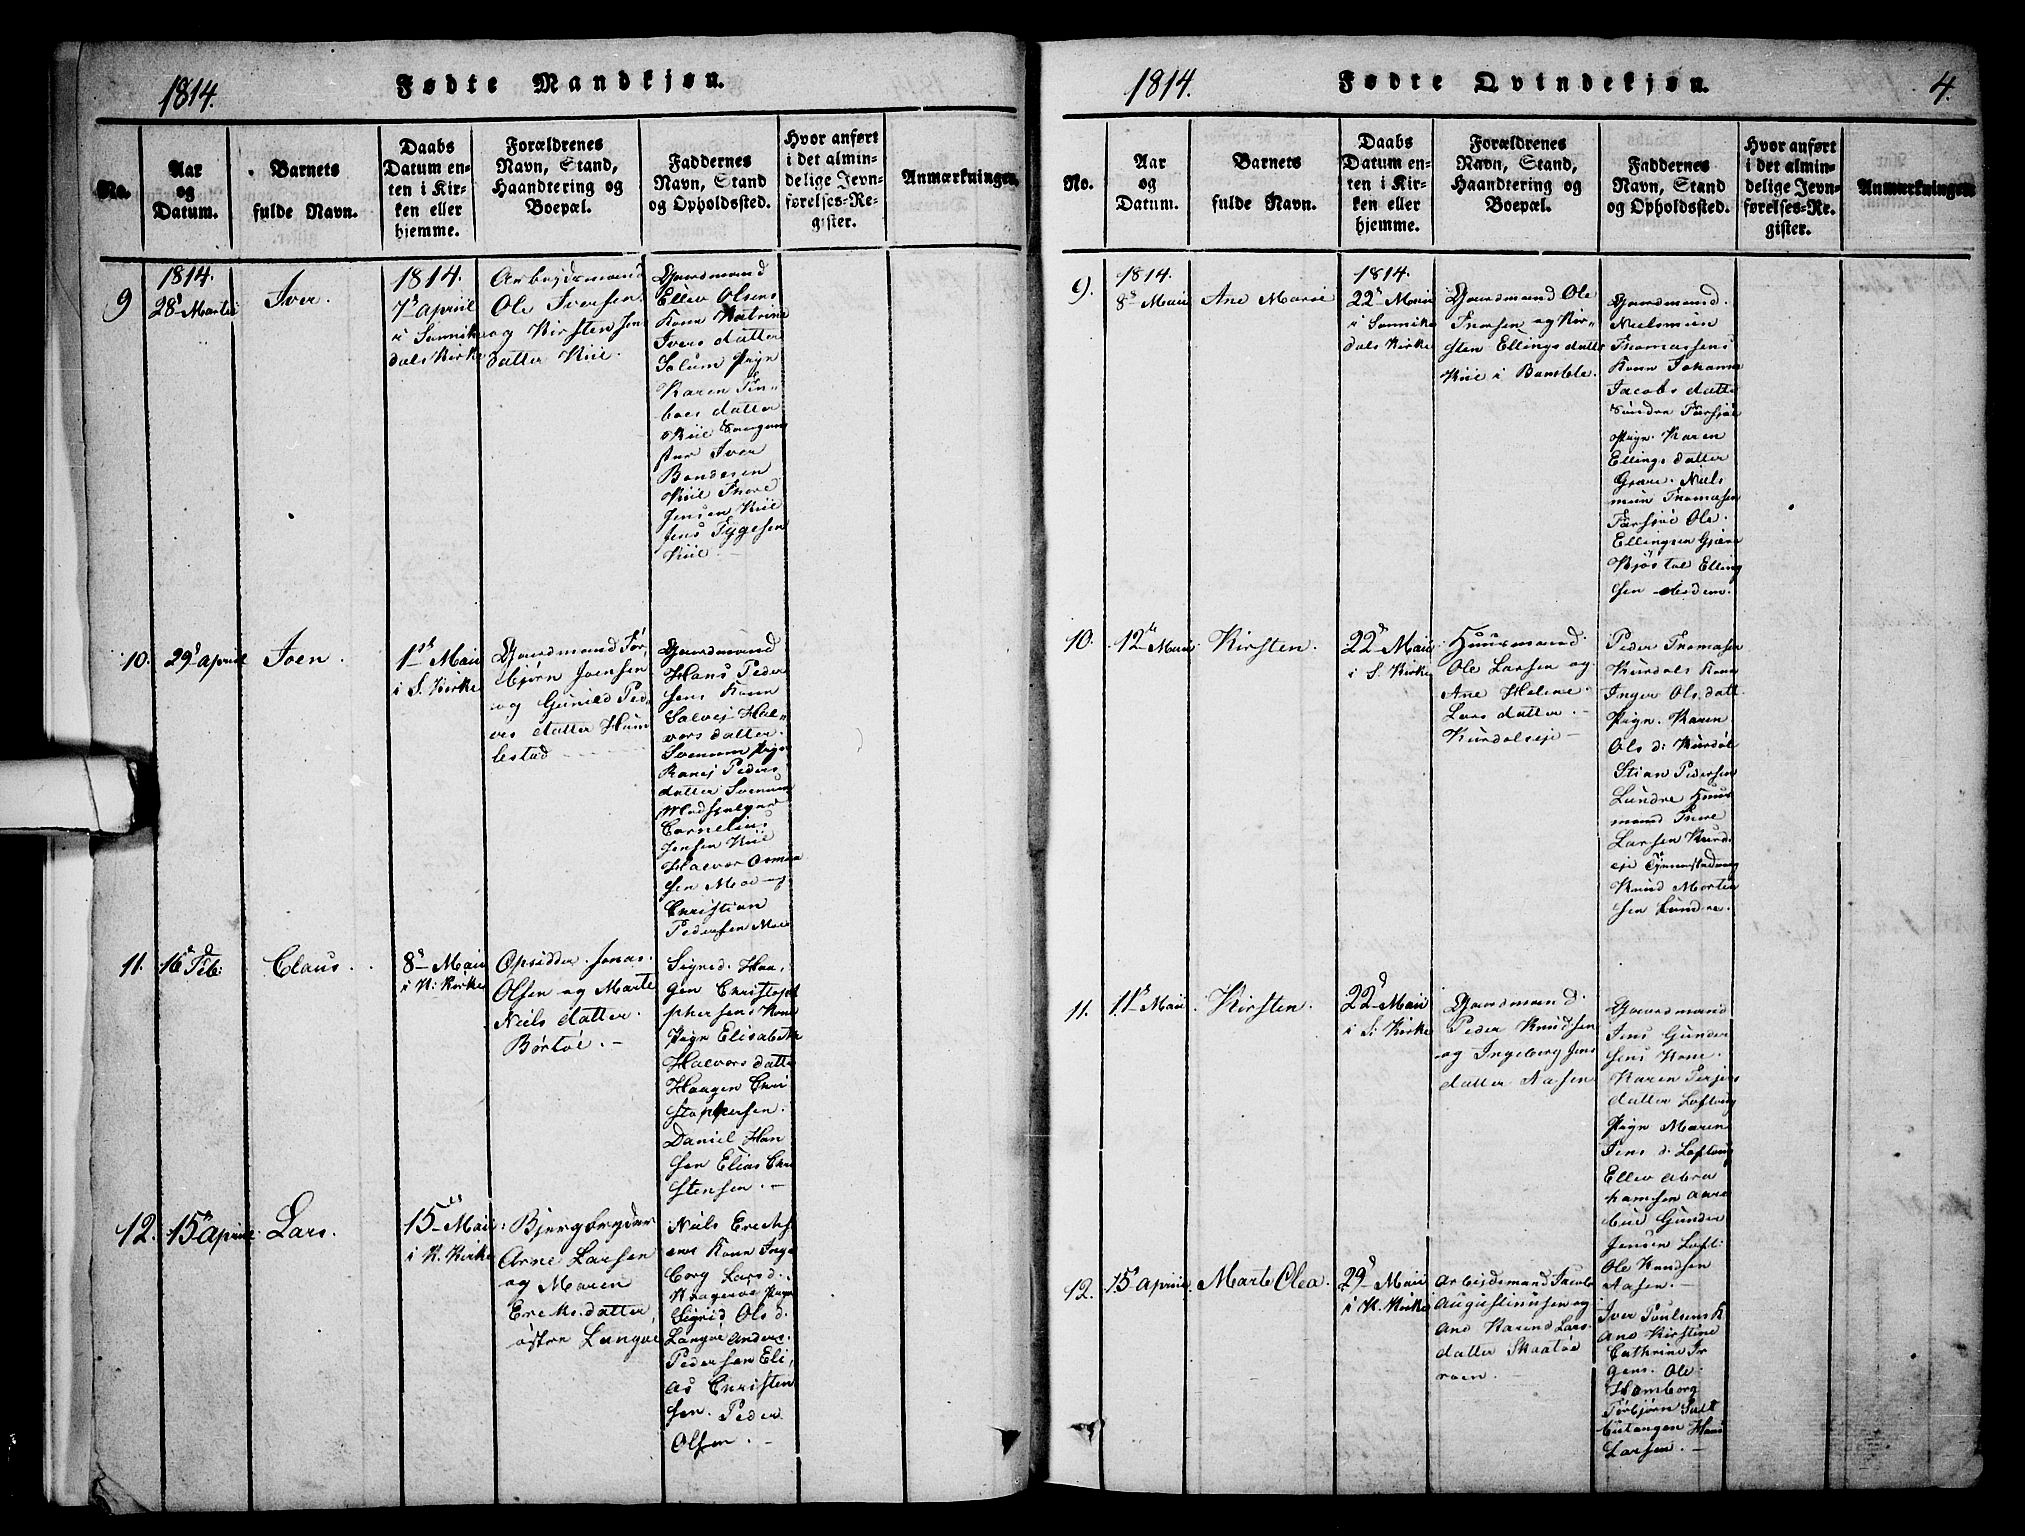 1814.
Fødte Mandkjøn.
No.
Aar
og
Datum.
Barnets
fulde Navn.
Daabs
Datum en-
ten i Kir-
ken eller
hjemme.
Forældrenes
Navn, Stand,
Haandtering og
Boepæl.
Faddernes
Navn, Stand
og Opholdssted.
Hvor anført
i det almin-
delige Jevn-
førelses-Re-
gister.
Anmærkninger.
9
1814.
28de Martii
Iver.
1814.
7de April
i Sannike
dals Kirke
Arbejdsmand
Ole Iversen
og Kirsten Jens
datter Kiil.
Gaardmand
Ellev Olsens
Kone Katrine
Ivers datter
Solum Pige
Karen Tor
boes datter
Kiil
Iver
Bondesen
Kiil Thore
Jensen Kiil
Jens Tygesen
Kiil
10.
29de April
Joen.
1ste Maii
i S. Kirke
Gaardmand Tor
bjørn Joensen
og Gunild Ped
ers datter Hum
lestad
Gaardmand
Hans Peder
sens Kone
Salvej Hal-
vors datter.
Svenum Pige
Ranej Peders
datter Svenum
Cornelius
Jensen Kiil
Halvor Osmon
sen Moe og
Christian
Pedersen Moe
11.
16de Feb:
Claus.
8de Maii
i K: Kirke
Opsidder Jonas
Olsen og Marte
Niels datter.
Børtøe.
Sigred Haa
gen Christoph
phersens Kone
Pige Elisabeth
Halvors datter
Haagen Chri
stophersen.
Daniel Han
sen Elias Chri
stensen.
12.
15de April
Lars.
15de Maii
i K. Kirke
Bjergbryder
Arne Larsen
og Maren
Ereks. datter
østre Langøe
Niels Ereks
ens Kone Inge
borg Lars d.
Kragerøe Pige
Sigrid Ols d.
Langøe Anders
Pedersen Eli
as Christen
sen. Peder
Olsen.
1814.
Fødte Qvindekjøn.
4.
No.
Aar
og
Datum.
Barnets
fulde Navn.
Daabs
Datum en-
ten i Kir-
ken eller
hjemme.
Forældrenes
Navn, Stand,
Haandtering og
Boepæl.
Faddernes
Navn, Stand
og Opholdssted.
Hvor anført
i det almin-
delige Jevn-
førelses-Re-
gister.
Anmærkninger.
9.
1814.
8de Maii
Ane Marie
1814.
22de Maii
i Sannike
dals Kirke
Gaardmand Ole
Thorsen og Kir-
sten Ellings datter
Kiil i Bamble.
Gaardmand
Nielsmun
Thomassens
Kone Johanne
Jacobs datter
Søndre Farsjøe
Pige. Karen
Ellings datter
Giære. Niels
mun Thomasen
Farsjøe Ole
Ellingsen Gjære
Kjøstol Elling
sen
10.
12te Maii
Kirsten
22de Maii
i S. Kirke
Huusmand
Ole Larsen og
Ane Helene
Lars datter
Kurdalseje
Peder Thomasen
Kurdals Kone
Inger Ols datt
Pige. Karen
Ols d: Kurdøl
Stian Pedersen
Lundre Huus
mand Thore
Larsen Kurd
eje
Knud Morten
sen Lundre.
11.
11te Maii
Kirsten
22de Maii
i S: Kirke
Gaardmand
Peder Knudsen
og Ingeberg Jens
datter Aasen
Gaardmand
Jens Gunder
sens Kone
Karen Terjens
datter Loftvig
Pige Maren
Jens d: Loftvig
Ellev Abra
hamsen Aare
bue Gunder
Jensen Loft:
Ole Knudsen
Aasen.
12.
15de April
Marte Olea.
29de Maii
i K. Kirke
Arbejdsmand Jacob
Augustinusen og
Ane Karine Lars
datter Skaatøe
roen.
Iver Poulsens K
Ane Kirstine
Cathrine Jr
gens. Ole
Hamborg
Torbjørn Salt
butangen Hans
Larsen.